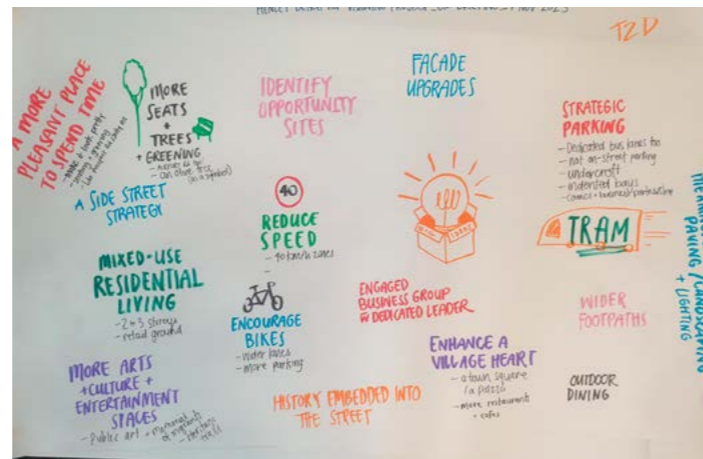 T2D
A MORE
PLEASANT PLACE
TO SPEND TIME
MORE
SEATS
+
TREES
+ GREENING
- an olive tree
(as a symbol)
A SIDE STREET
STRATEGY
IDENTIFY
OPPORTUNITY
SITES
FACADE
UPGRADES
STRATEGIC
PARKING
- Dedicated bus lanes too
- not on-street parking
- undercroft
- indented bays
40
REDUCE
SPEED
- 40 km/h zones
IDEAS
TRAM
PAVING / LANDSCAPING
+ LIGHTING
MIXED-USE
RESIDENTIAL
LIVING
- 2 to 3 storeys
- retail ground
ENCOURAGE
BIKES
- wider lanes
- more parking
ENGAGED
BUSINESS GROUP
DEDICATED LEADER
WIDER
FOOTPATHS
MORE ARTS
+ CULTURE +
ENTERTAINMENT
SPACES
- Public art
HISTORY EMBEDDED INTO
THE STREET
ENHANCE A
VILLAGE HEART
- a town square
/ a piazza
- more restaurants
+ cafes
OUTDOOR
DINING